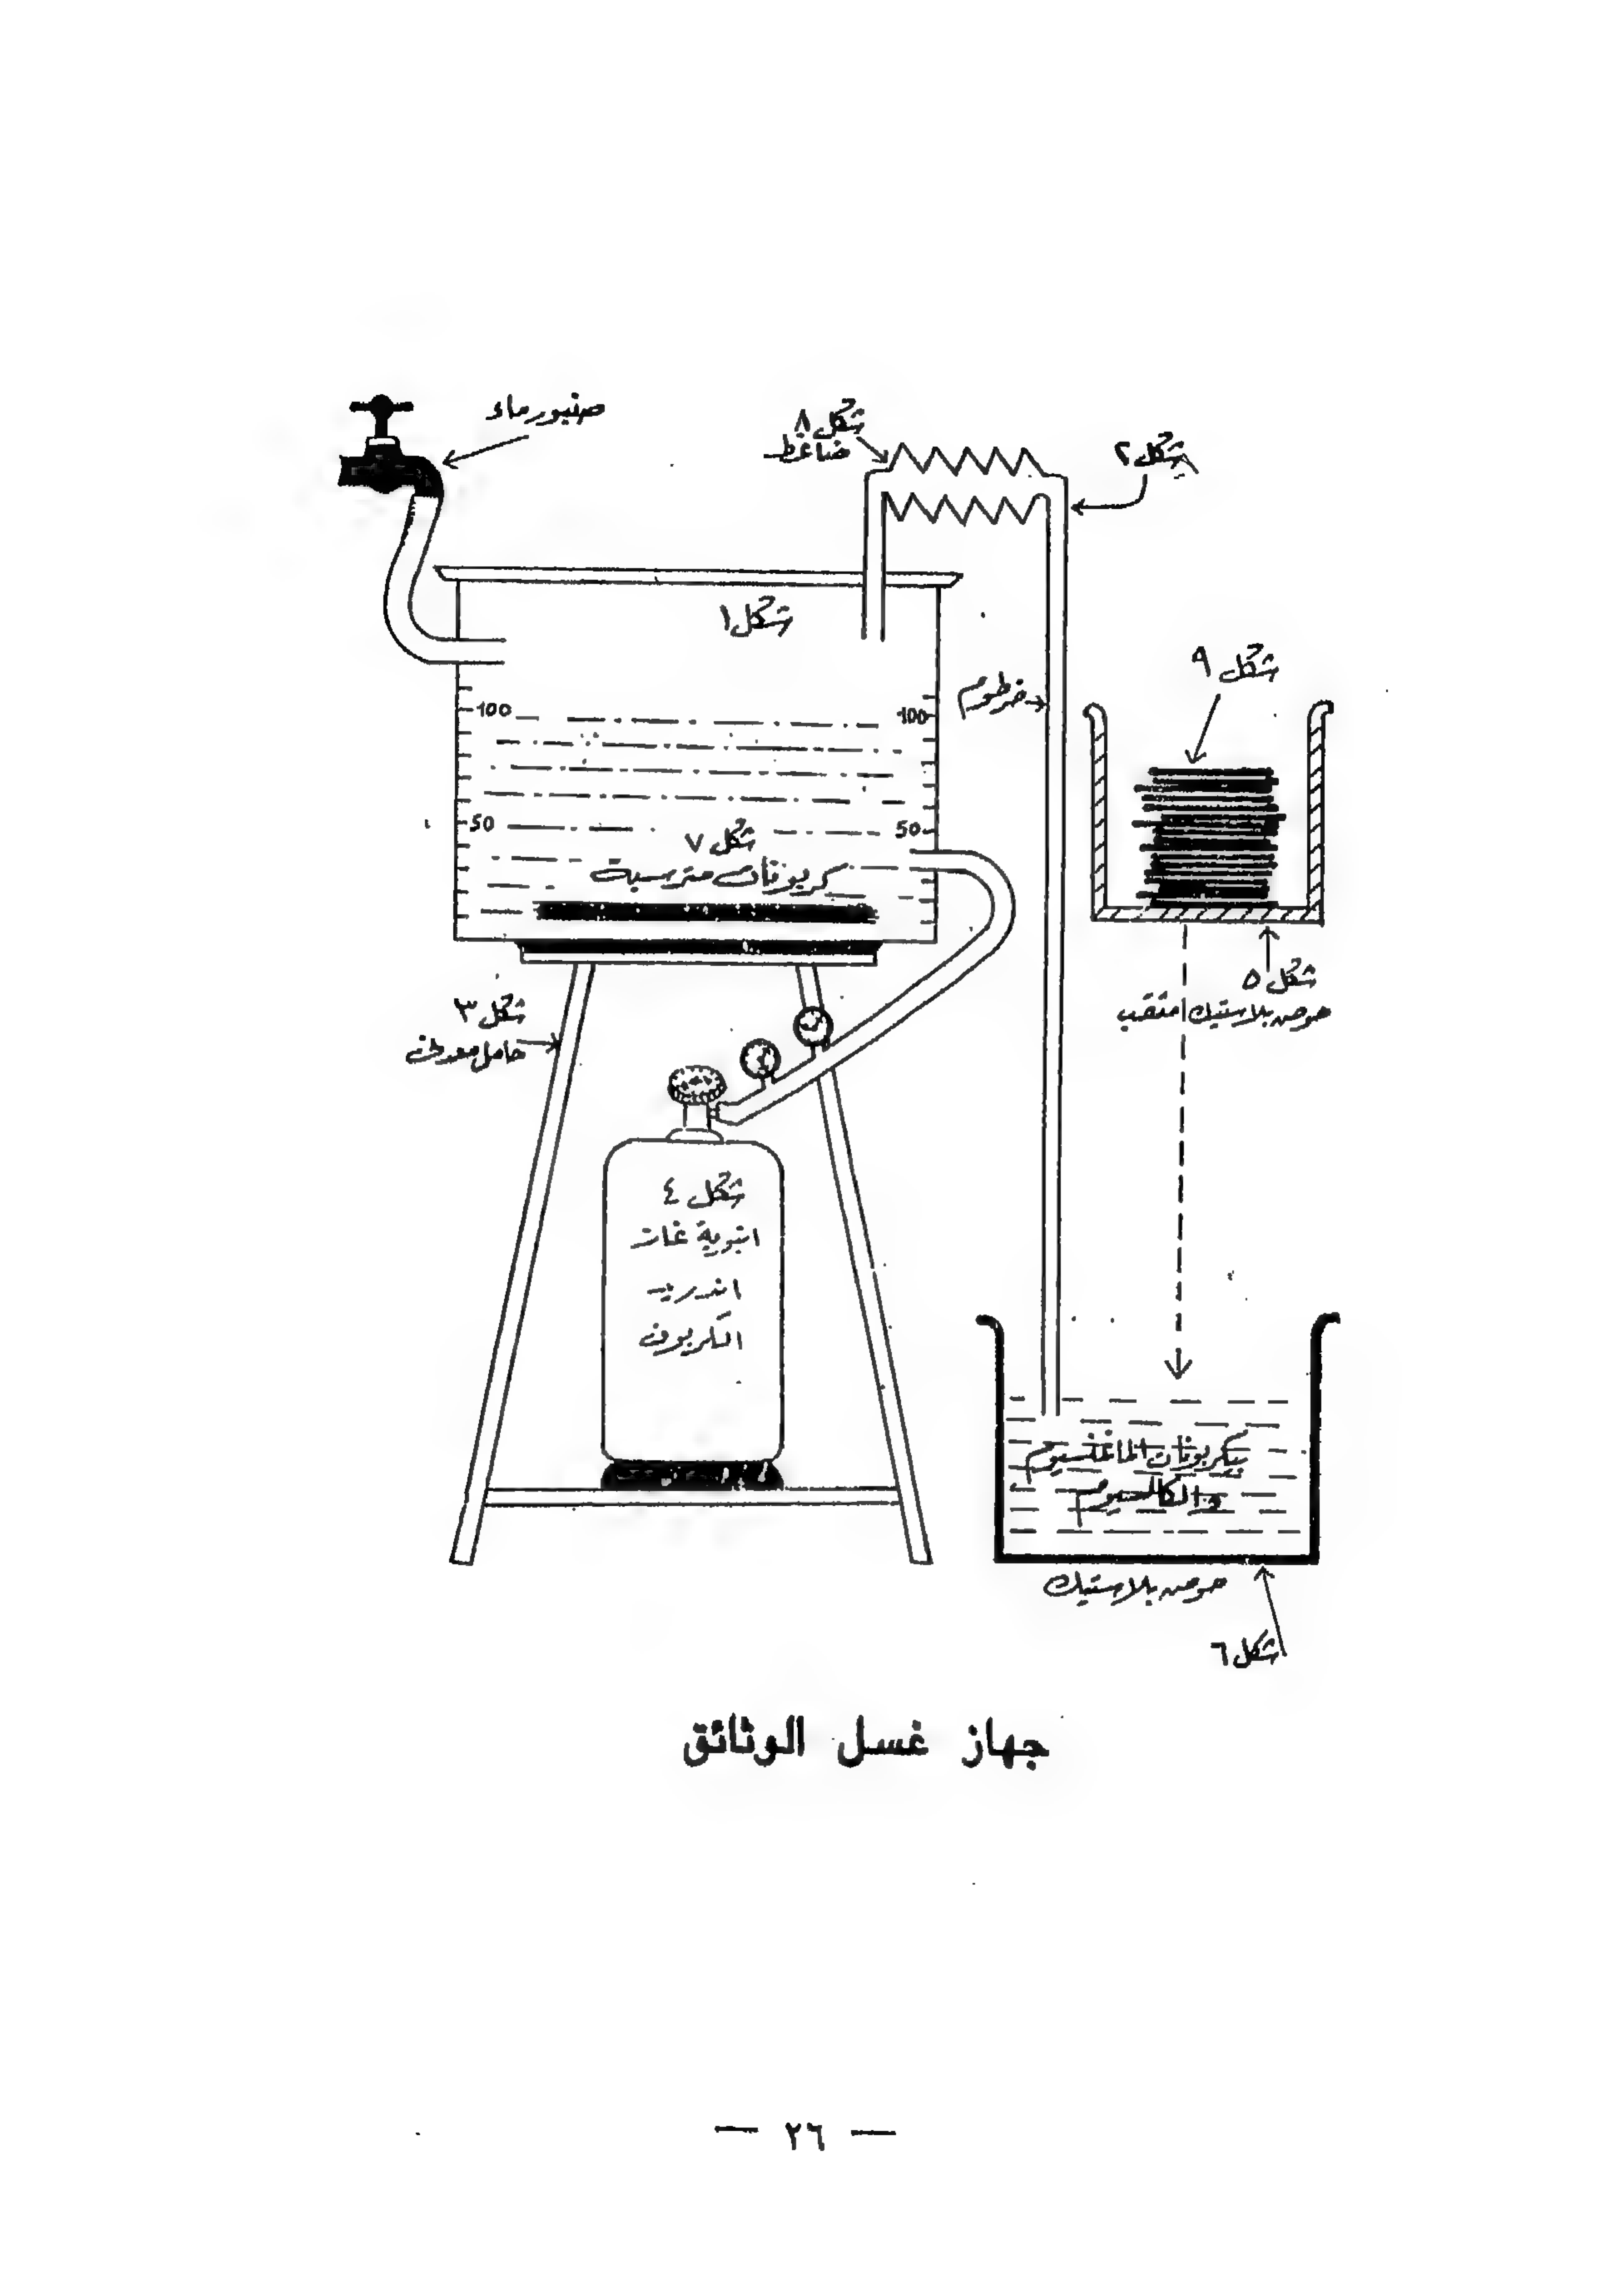 صنبور ماء
شكل ٨
ضاغط
شكل ٢
شكل ١
خرطوم
شكل ٩
100 100
50 50
شكل ٧
كربونات مترسبة
شكل ٥
حوض بلاستيك مثقب
شكل ٣
حامل معدني
شكل ٤
انبوبة غاز
اندريد
الكربون
بيكربونات الماغنسيوم
والكالسيوم
حوض بلاستيك
شكل ٦
جهاز غسل الوثائق
— ٢٦ —